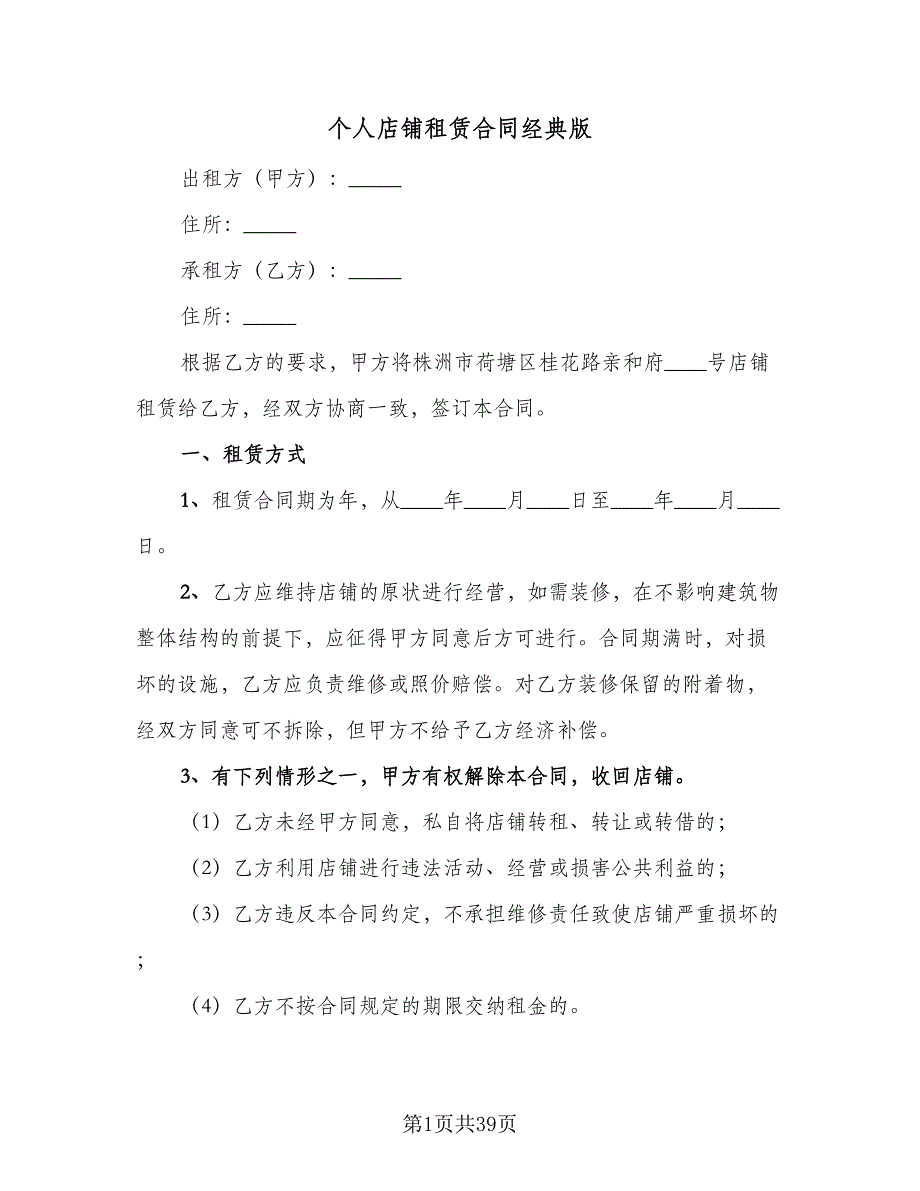 个人店铺租赁合同经典版
出租方（甲方）：_____
住所：_____
承租方（乙方）：_____
住所：_____
根据乙方的要求，甲方将株洲市荷塘区桂花路亲和府____号店铺
租赁给乙方，经双方协商一致，签订本合同。
一、租赁方式
1、租赁合同期为年，从____年____月____日至____年____月____
日。
2、乙方应维持店铺的原状进行经营，如需装修，在不影响建筑物
整体结构的前提下，应征得甲方同意后方可进行。合同期满时，对损
坏的设施，乙方应负责维修或照价赔偿。对乙方装修保留的附着物，
经双方同意可不拆除，但甲方不给予乙方经济补偿。
3、有下列情形之一，甲方有权解除本合同，收回店铺。
（1）乙方未经甲方同意，私自将店铺转租、转让或转借的；
（2）乙方利用店铺进行违法活动、经营或损害公共利益的；
（3）乙方违反本合同约定，不承担维修责任致使店铺严重损坏的
；
（4）乙方不按合同规定的期限交纳租金的。
第1页共39页